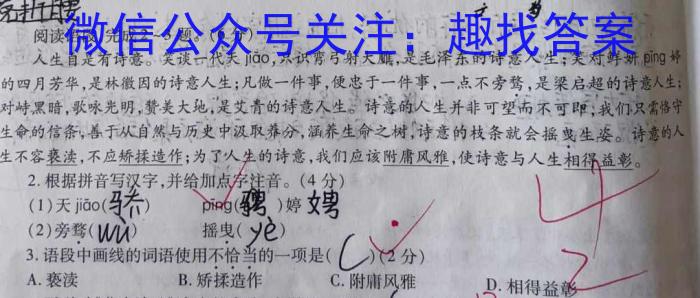 微信公众号关注：趣找答案
阅读语段,完成2～3题。(6分)
人生自是有诗意。笑谈一代天jiāo,只识弯弓射大雕,是毛泽东的诗意人生;笑对鲜妍pīng婷
的四月芳华,是林徽因的诗意人生;凡做一件事,便忠于一件事,一点不旁骛,是梁启超的诗意人生;
对峙黑暗,歌咏光明,赞美大地,是艾青的诗意人生。诗意的人生并非可望而不可即;我们只需恪守
生命的信条,善于从自然与历史中汲取养分,涵养生命之树,诗意的枝条就会摇曳生姿。诗意的人
生不容亵渎,不应矫揉造作;为了人生的诗意,我们应该附庸风雅,使诗意与人生相得益彰。
2.根据拼音写汉字,并给加点字注音。(4分)
(1)天jiāo(骄) pīng(聘)婷 娉
(2)旁骛(wù) 摇曳(yè)
3.语段中画线的词语使用不恰当的一项是(C)(2分)
A.亵渎 B.矫揉造作 C.附庸风雅 D.相得益彰